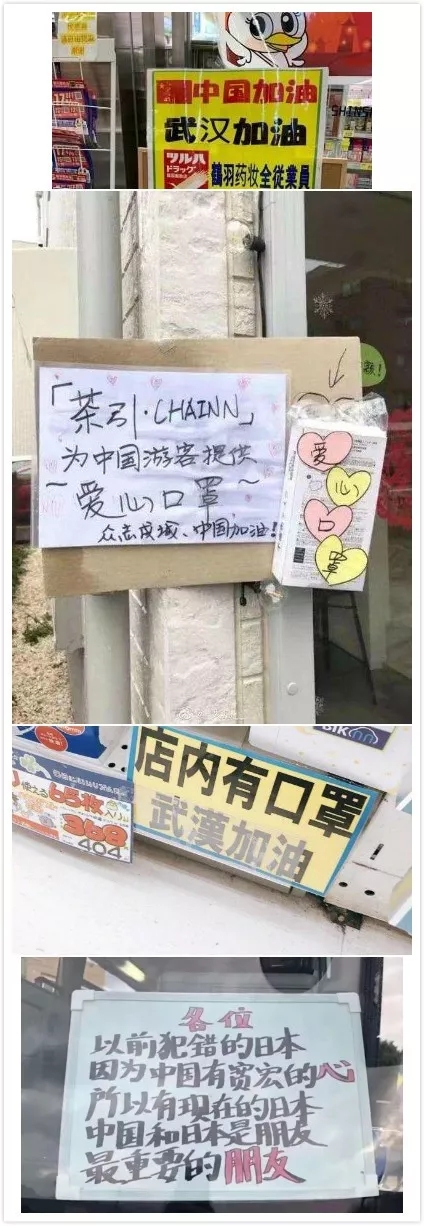 中国加油
武汉加油
ツルハ
ドラッグ
鶴羽药妆全従業員
「茶引·CHAINN」
为中国游客提供
~爱心口罩~
众志成城、中国加油!
爱
心
口
罩
店内有口罩
武漢加油
65枚入り
368
404
各位
以前犯错的日本
因为中国有宽宏的心
所以有现在的日本
中国和日本是朋友
最重要的朋友